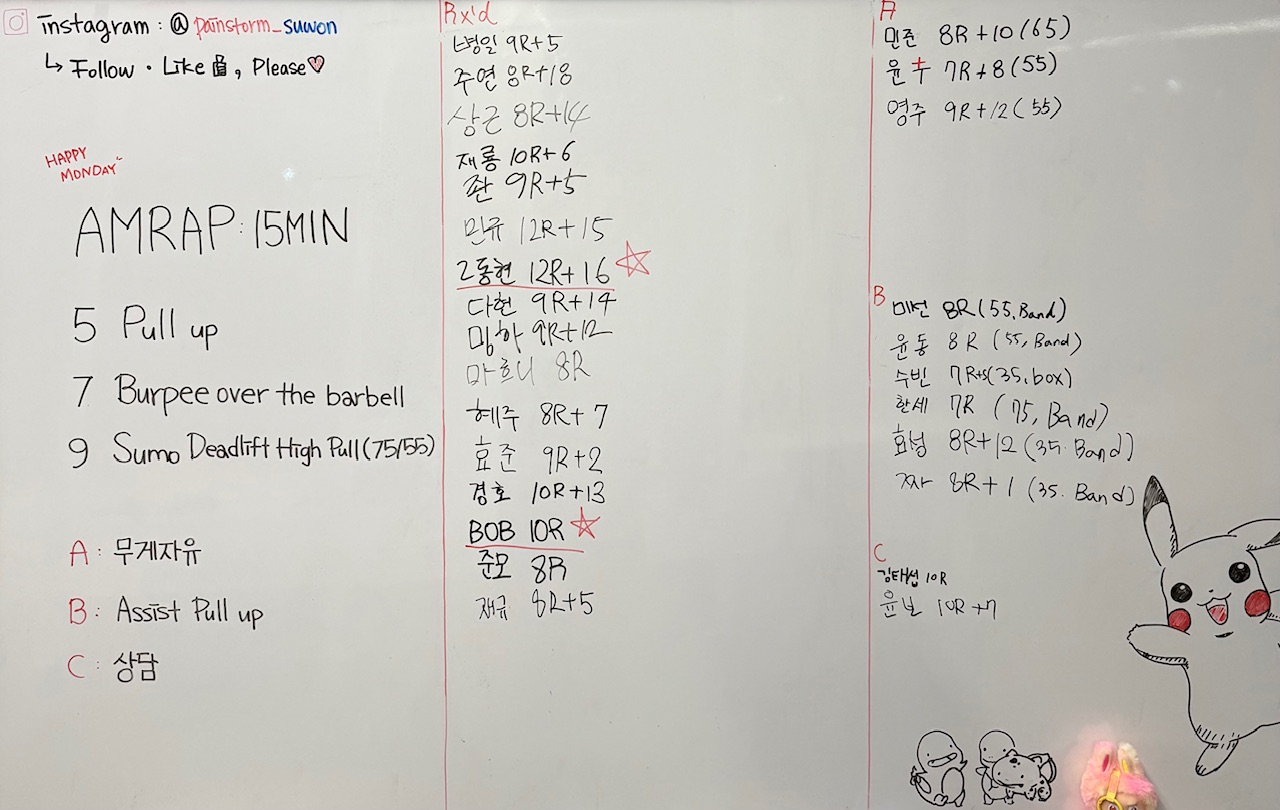 instagram : @painstorm_suwon
↳ Follow · Like 👍, Please♡
HAPPY
MONDAY~
AMRAP: 15MIN
5 Pull up
7 Burpee over the barbell
9 Sumo Deadlift High Pull (75/55)
A: 무게자유
B: Assist Pull up
C: 상담
Rx'd
병일 9R+5
주연 8R+18
상근 8R+14
재룡 10R+6
좐 9R+5
민규 12R+15
동현 12R+16 ☆
다현 9R+14
밍하 9R+12
마호니 8R
혜주 8R+7
효준 9R+2
경호 10R+13
BOB 10R ☆
준모 8R
재규 8R+5
A
민준 8R+10 (65)
윤수 7R+8 (55)
영주 9R+12 (55)
B
미선 8R (55, Band)
윤동 8R (55, Band)
수빈 7R+5 (35, box)
한세 7R (75, Band)
효성 8R+12 (35. Band)
짜 8R+1 (35. Band)
C
김태섭 10R
10R+7